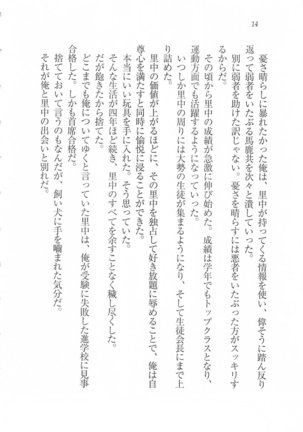 14
憂さ晴らしに暴れたかった俺は、里中が持ってくる情報を使い、偉そうに踏ん反り
返って弱者をいたぶる馬鹿共を次々と潰していった。
別に弱者を助けた訳じゃない。憂さを晴らすには悪者をいたぶった方がスッキリす
るからだ。
その頃から里中の成績が急激に伸び始めた。成績は学年でもトップクラスとなり、
運動方面でも活躍するようになっていった。
いつしか里中の周りには大勢の生徒が集まるようになり、そして生徒会長にまで上
り詰めた。
里中の価値が上がるほどに、その里中を独占して好き放題に辱めることで、俺は自
尊心を満たすと同時に愉悦に浸ることができた。
本当にいい玩具を手に入れた。そう思っていた。
そんな生活が四年ほど続き、里中のすべてを余すことなく穢し尽くした。
だが飽きたから捨てた。
どこまでも俺についてゆくと言っていた里中は、俺が受験に失敗した進学校に見事
合格した。しかも首席合格だ。
捨てておいて言うのもなんだが、飼い犬に手を噛まれた気分だ。
それが俺と里中の出会いと別れだ。